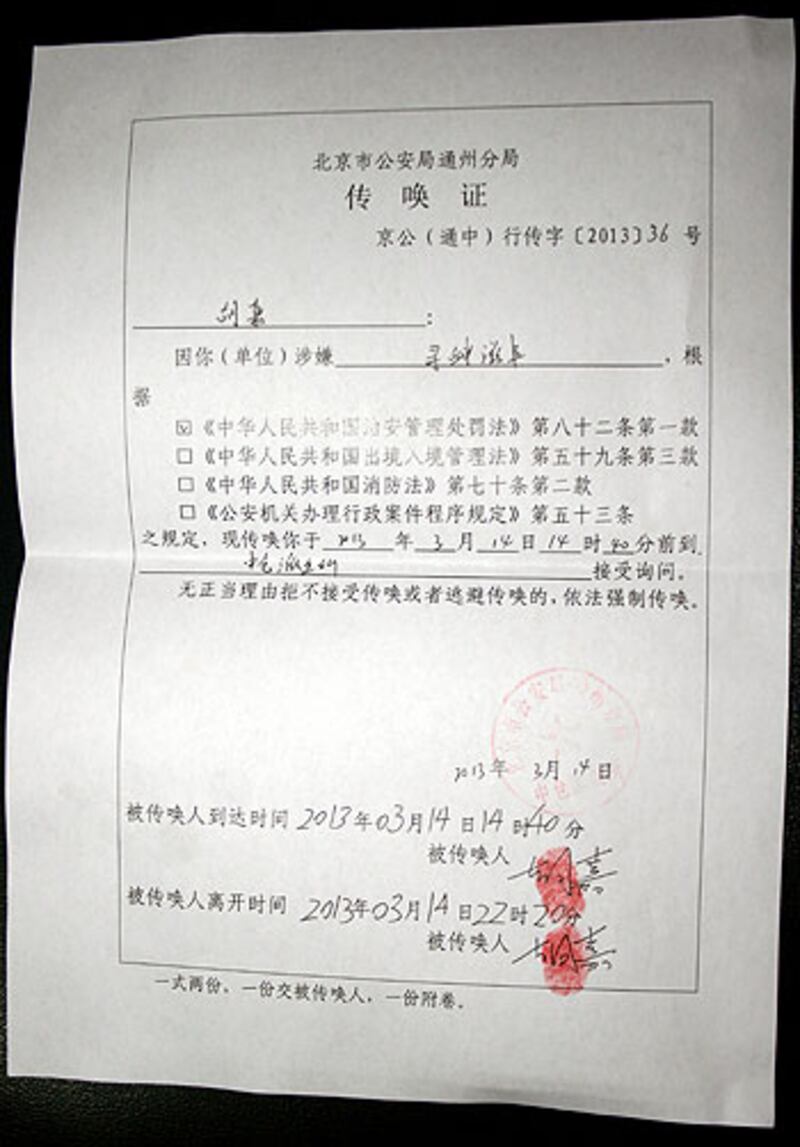 北京市公安局通州分局
传 唤 证
京公（通中）行传字〔2013〕36 号
胡嘉：
因你（单位）涉嫌寻衅滋事，根
据
☑《中华人民共和国治安管理处罚法》第八十二条第一款
□《中华人民共和国出境入境管理法》第五十九条第三款
□《中华人民共和国消防法》第七十条第二款
□《公安机关办理行政案件程序规定》第五十三条
之规定，现传唤你于 2013 年 3 月 14 日 14 时 40 分前到
中仓派出所接受询问。
无正当理由拒不接受传唤或者逃避传唤的，依法强制传唤。
2013年 3月 14日
被传唤人到达时间 2013年03月14日14时40分
被传唤人 胡嘉
被传唤人离开时间 2013年03月14日22时20分
被传唤人 胡嘉
一式两份，一份交被传唤人，一份附卷。